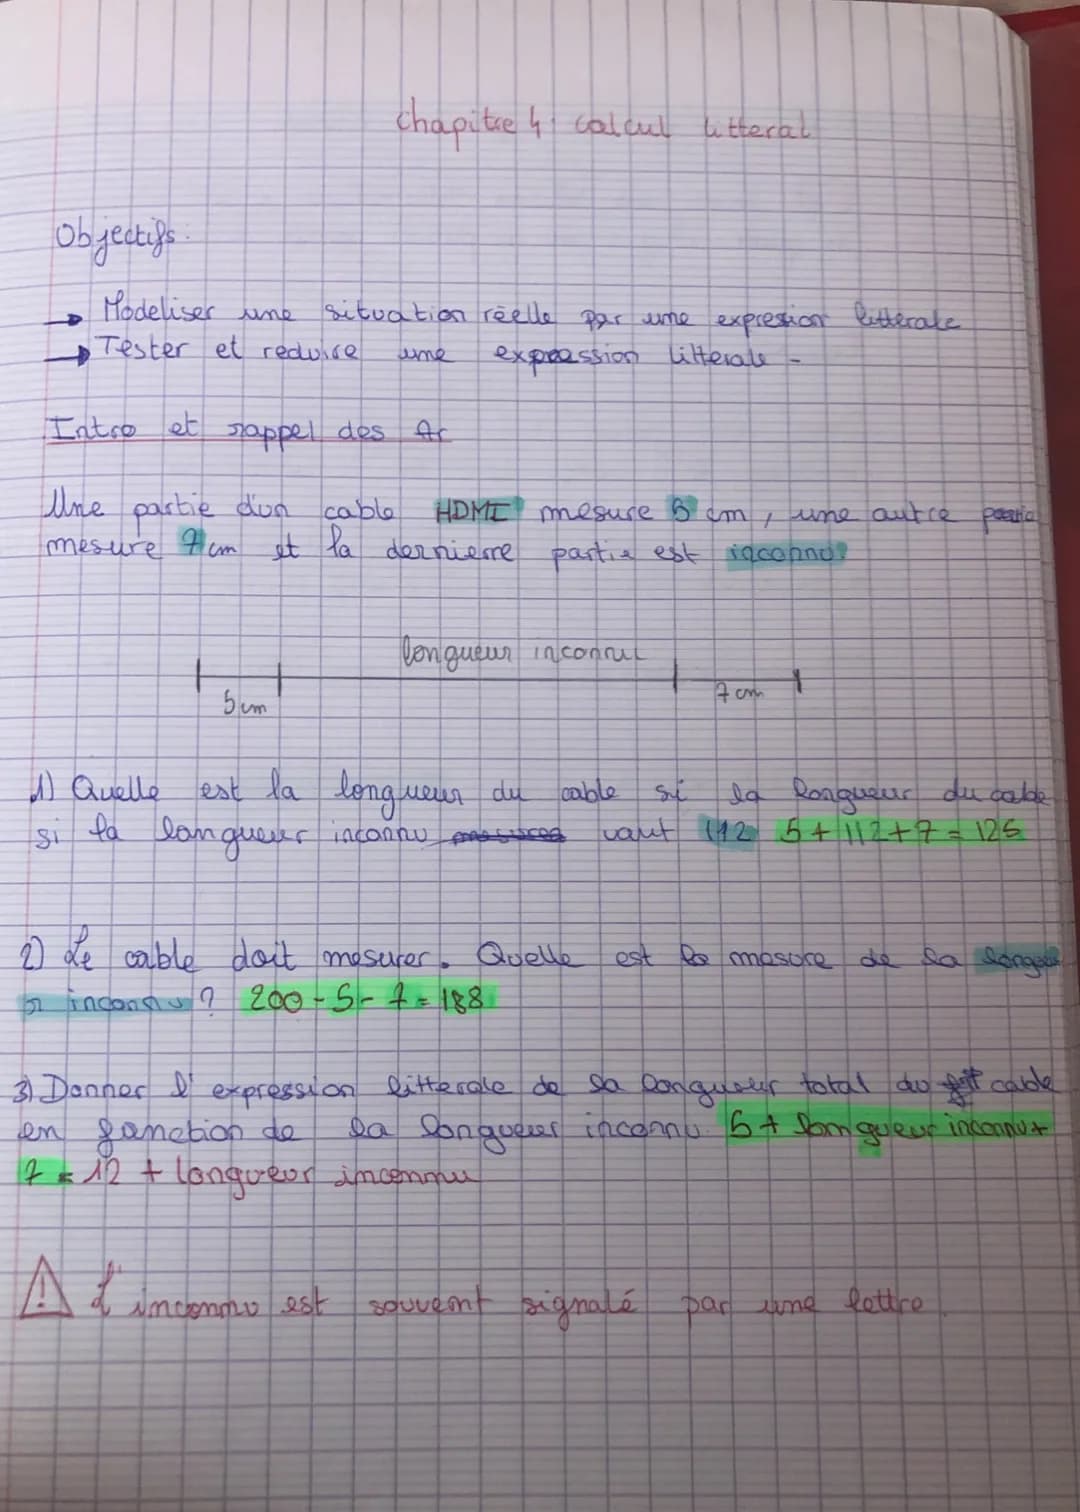 Chapitre 4: calcul litteral
Objectifs:
→ Modeliser une situation réelle par une expression litterale
→ Tester et reduire une expression litterale -
Intro et rappel des Ac
Une partie d'un cable HDMI mesure 5 cm, une autre partie
mesure 7 cm et la dernierre partie est inconnu?
longueur inconnu
5 cm
7 cm
1) Quelle est la longueur du cable si la longueur du cable
si la longueur inconnu vaut 112 5 + 112 + 7 = 125
2) Le cable doit mesurer. Quelle est la mesure de la longueu
r inconnu? 200 - 5 - 7 = 188
3) Donner l'expression litterale de la longueur total du cable
en fonction de la longueur inconnu. 5 + longueur inconnu +
7 = 12 + longueur inconnu
! L'inconnu est souvent signalé par une lettre.